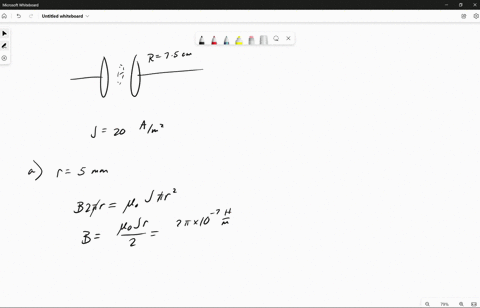 Microsoft Whiteboard
Untitled whiteboard
R = 7.5 cm
J = 20 A/m²
a) r = 5 mm
B2πr = μ₀ Jπr²
B = μ₀Jr/2 = 7π×10⁻⁷ H/m
79%